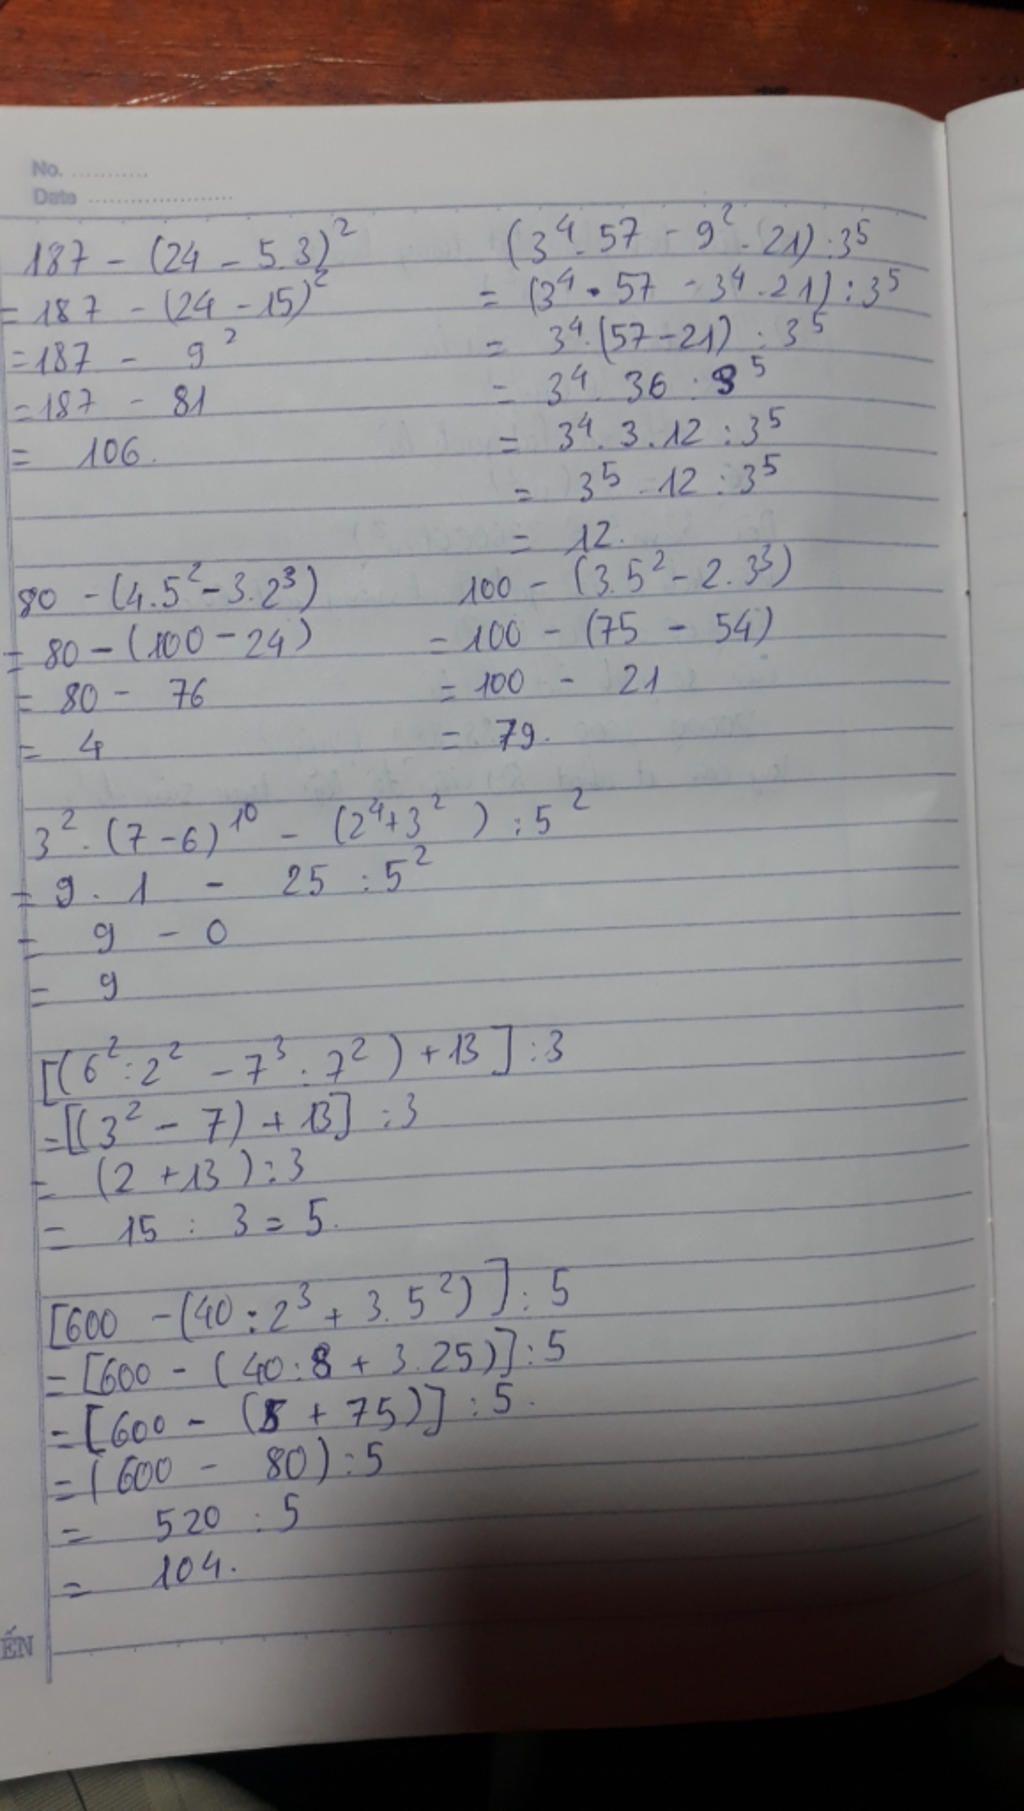 No. ...........
Date .....................
187 - (24 - 5.3)²
= 187 - (24 - 15)²
= 187 - 9²
= 187 - 81
= 106.
(3⁴.57 - 9².21):3⁵
= (3⁴.57 - 3⁴.21):3⁵
= 3⁴.(57-21) : 3⁵
= 3⁴. 36 : 3⁵
= 3⁴. 3.12 : 3⁵
= 3⁵.12 : 3⁵
= 12.
80 - (4.5² - 3.2³)
= 80 - (100 - 24)
= 80 - 76
= 4
100 - (3.5² - 2.3³)
= 100 - (75 - 54)
= 100 - 21
= 79.
3².(7-6)¹⁰ - (2⁴+3²) : 5²
= 9.1 - 25 : 5²
= 9 - 0
= 9
[(6²:2² - 7³.7²) + 13] : 3
= [(3² - 7) + 13] : 3
= (2 + 13) : 3
= 15 : 3 = 5.
[600 - (40:2³ + 3.5²)] : 5
= [600 - (40:8 + 3.25)] : 5
= [600 - (5 + 75)] : 5.
= (600 - 80) : 5
= 520 : 5
= 104.
ẾN